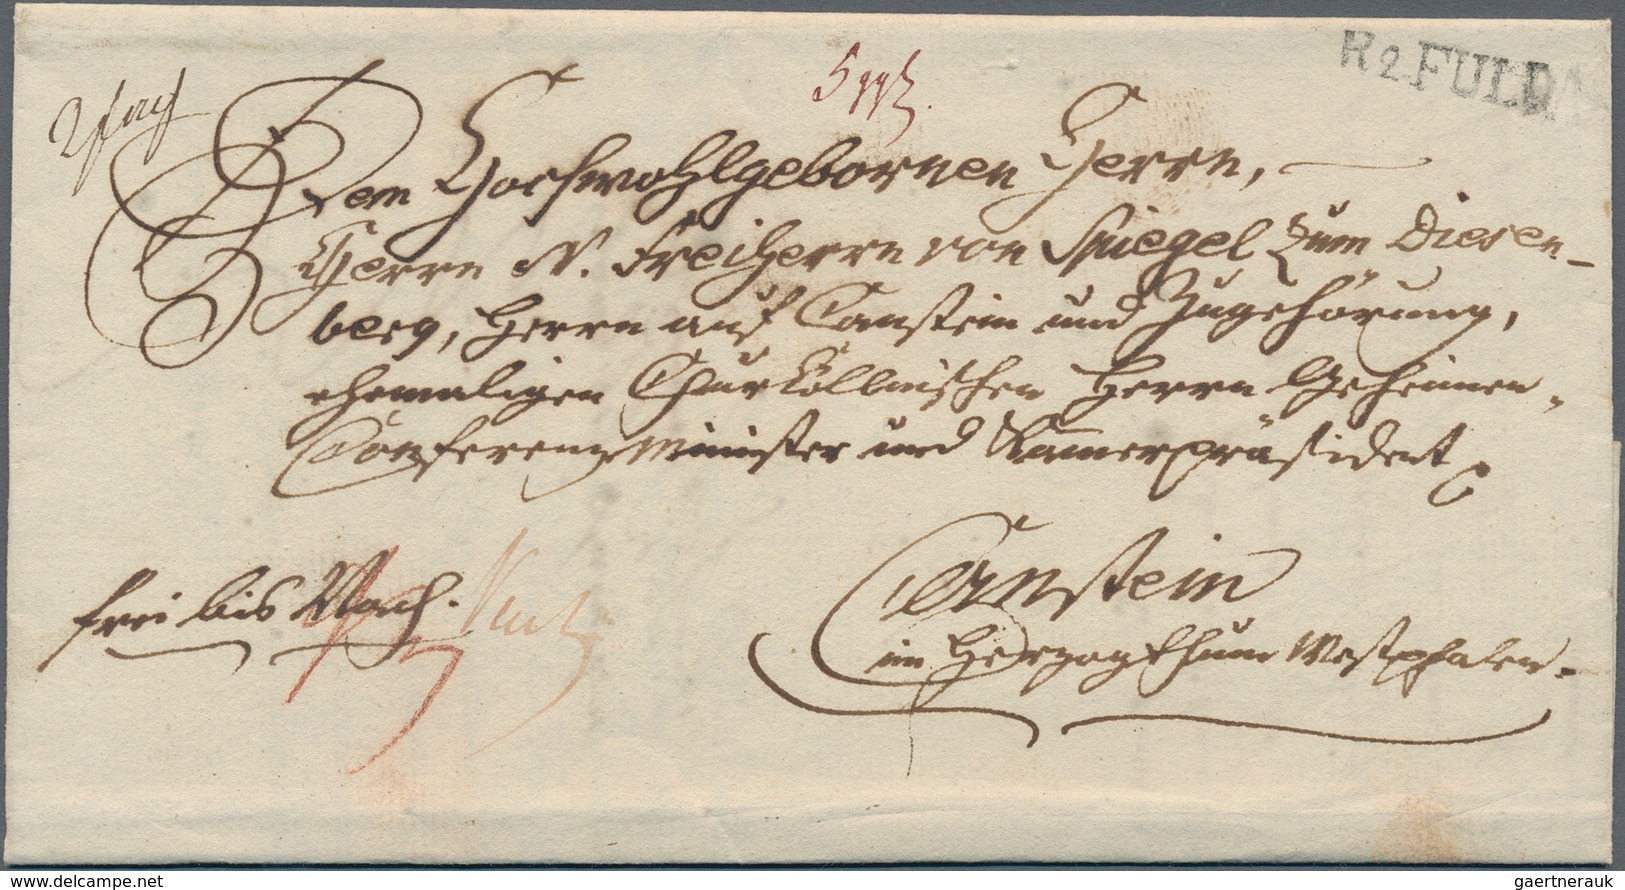 R2.FULDA
Dem Hochwohlgebornen Herrn,
Herrn N. Freiherrn von Spiegel zum Diesen-
berg, Herrn auf Canstein und Zugehörung,
ehemaligen Churköllnischen Herrn Geheimen-
Conferenz Minister und Kammerpräsident
frei bis
Canstein
im Herzogthum Westphalen.
www.delcampe.net
gaertnerauk